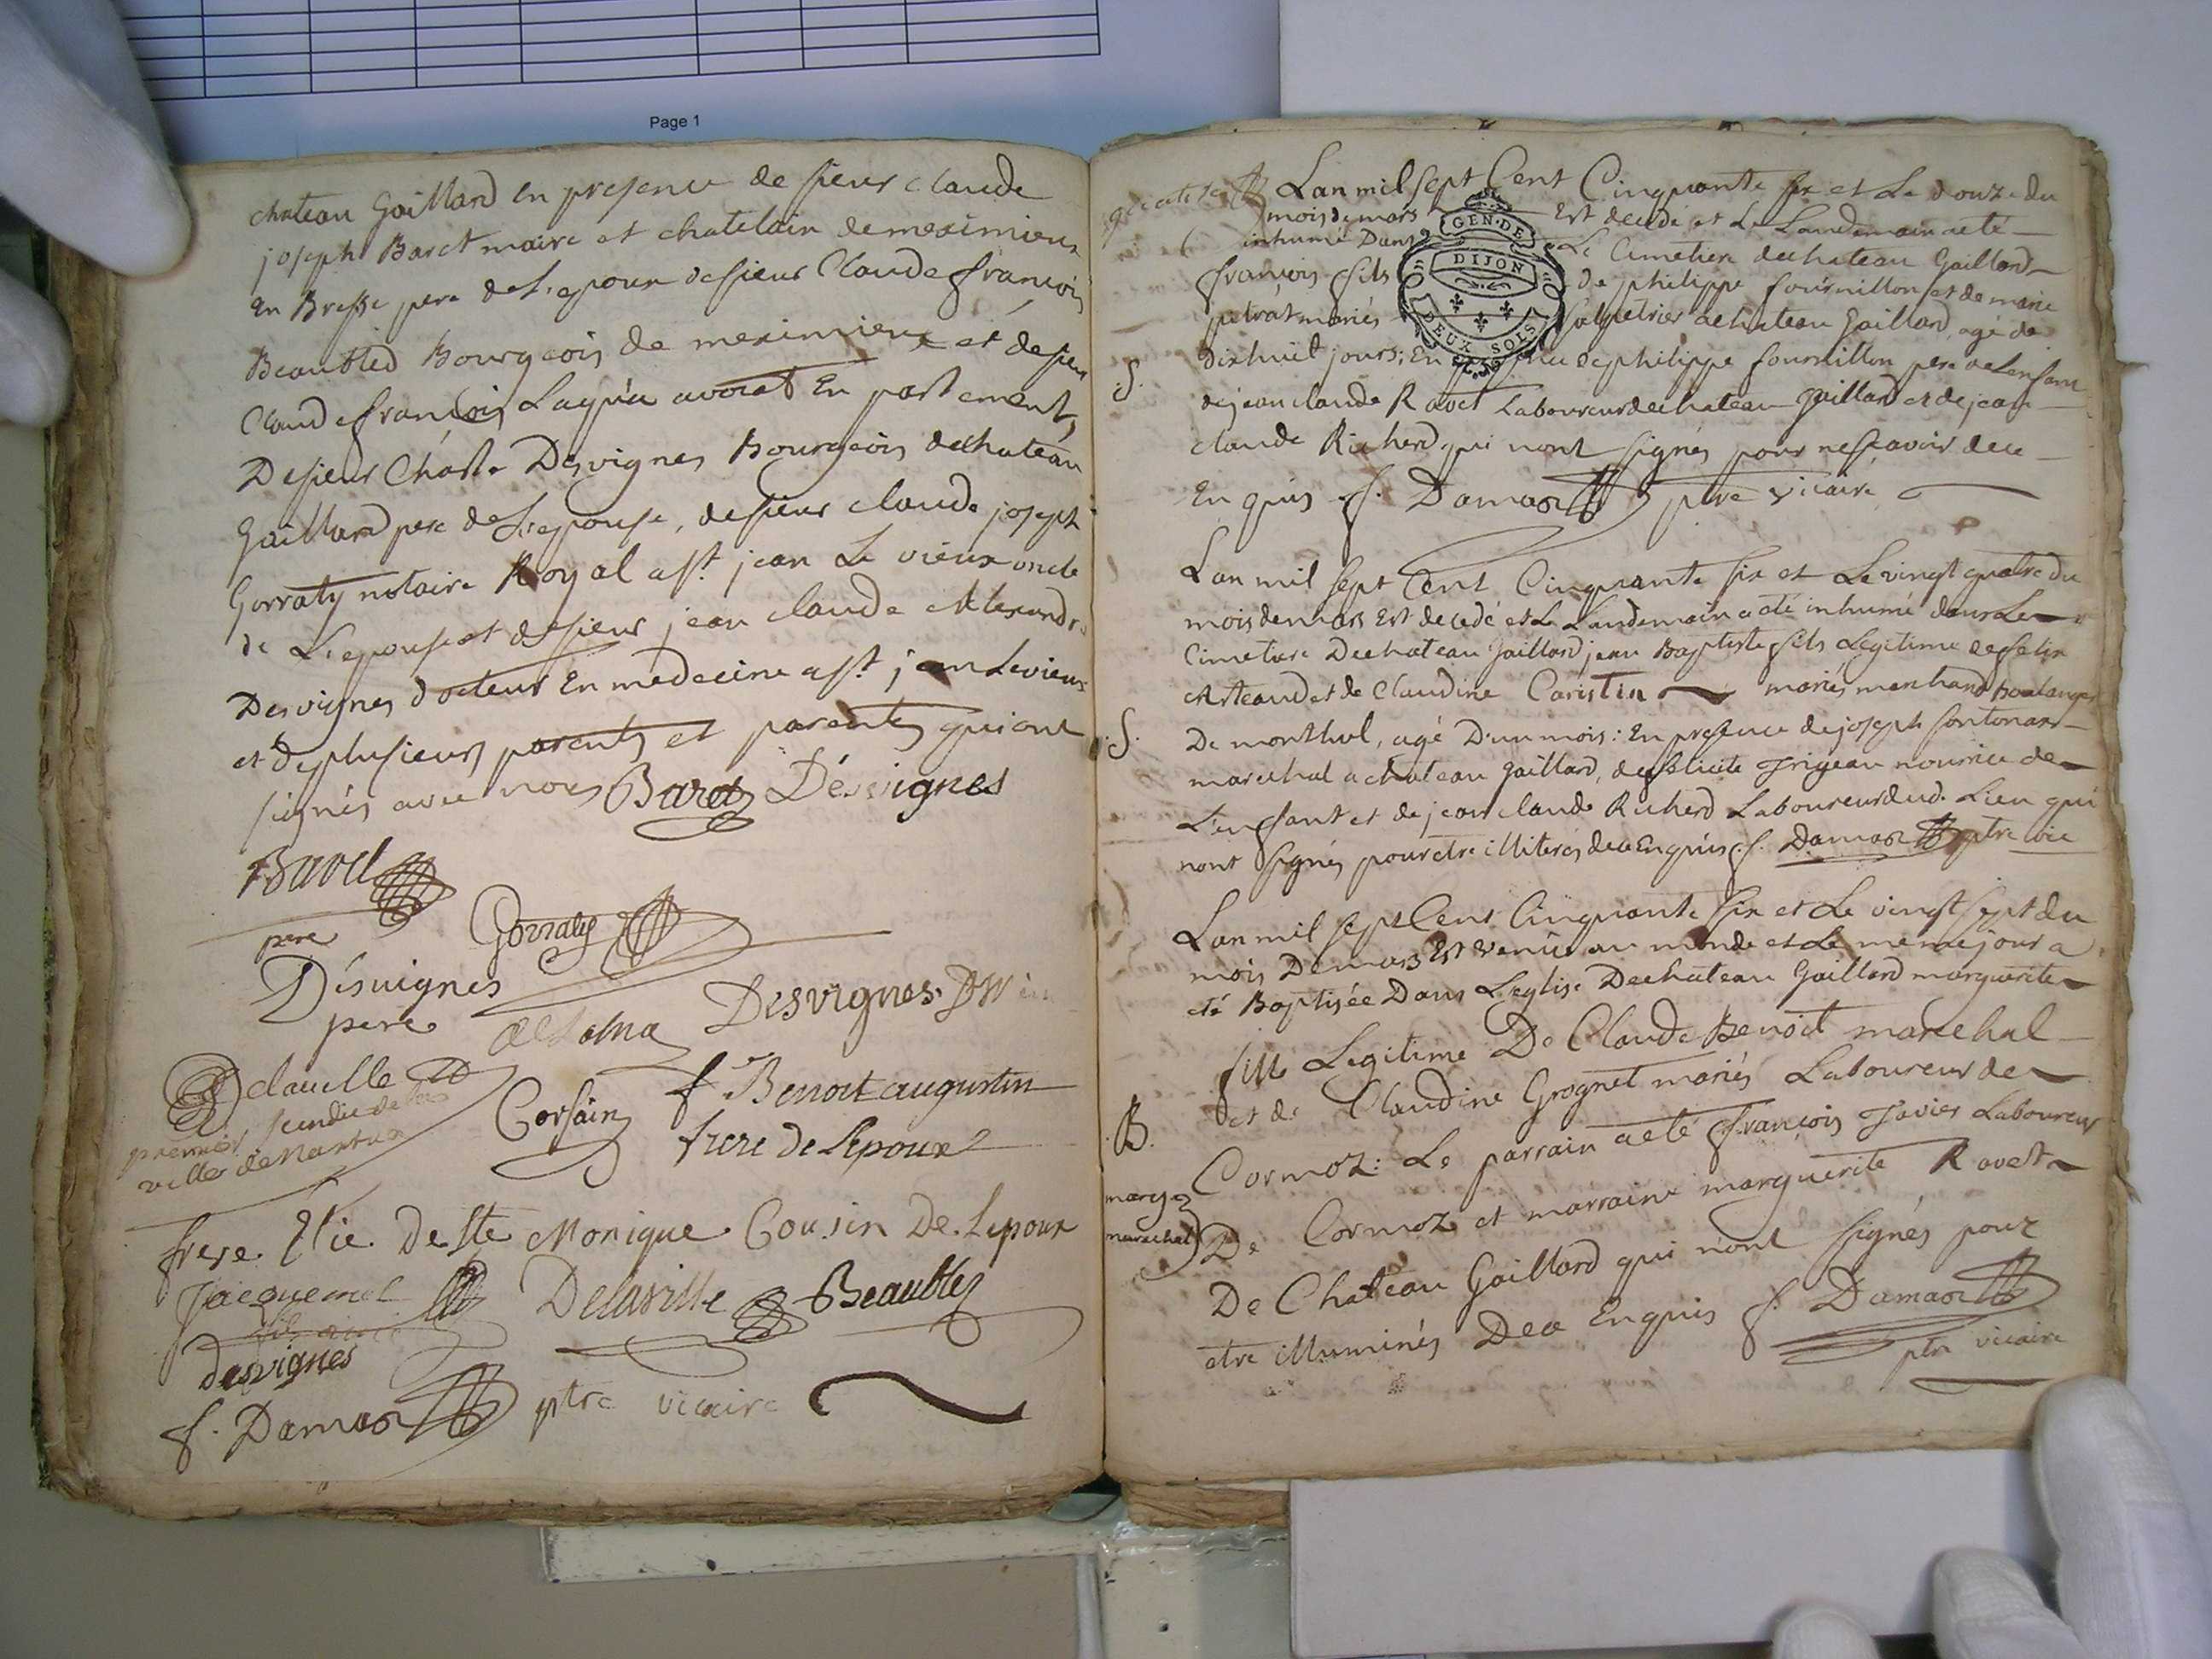 Page 1
chateau Gaillard en presence de sieur claude
joseph Baret maire et chatelain de meximieux
en Bresse pere de L'epoux de sieur Claude françois
Beaubled Bourgeois de meximieux et de sieur
Claude françois avocat En parlement,
De sieur Charle Desvignes Bourgeois de chateau
Gaillard pere de L'epouse, de sieur claude joseph
Gorraty notaire Royal a st jean Le vieux oncle
de L'epouse et de sieur jean claude Alexandre
Desvignes docteur En medecine a st jean Le vieux
et de plusieurs parents et parentes qui ont
signés avec nous Baret Désvignes
Baret
pere
Gorraty
Désvignes
pere
Desvignes
Delaville
premier scindic de la
ville de Nantua
Corsain
f Benoit augustin
frere de Lepoux
frere Elie De Ste Monique Cousin De Lepoux
Jacquemet
Delaville
Beaubled
desvignes
f. Damaz ptre vicaire
Lan mil sept Cent Cinquante six et Le douze du
mois de mars Est decedé et Le Landemain a eté
inhumé Dans Le Cimetiere de chateau Gaillard
françois fils de philippe fournillon et de marie
mariés salpetrier a chateau Gaillard agé de
GEN. DE
DIJON
DEUX SOLS
S.
dixhuit jours; En presence de philippe fournillon pere de Lenfant
de jean claude Ravet Laboureur de chateau Gaillard et de jean
claude Richerd qui nont signés pour ne scavoir de ce
En quis f. Damaz ptre vicaire
Lan mil sept Cent Cinquante six et Le vingt quatre du
mois de mars Est decedé et Le Landemain a eté inhumé dans Le
Cimetiere De chateau Gaillard jean Baptiste fils Legitime de felix
Arteaud et de Claudine Caristin mariés marchand Boulanger
S.
De monthuel, agé D'un mois: En presence de joseph fontonass
marechal a chateau Gaillard, de felicite nourice de
L'enfant et de jean claude Richerd Laboureur dud. Lieu qui
nont signés pour etre illiterés de ce Enquis f. Damaz ptre vic
Lan mil sept Cent Cinquante six et Le vingt sept du
mois De mars Est venue au monde et Le meme jour a
eté Baptisée Dans L'eglise De chateau Gaillard marguerite
fille Legitime De Claude Benoit marechal
et de Claudine Grognet mariés Laboureur de
B.
Cormoz: Le parrain a eté françois Javier Laboureur
marg
marechal
De Cormoz et marraine marguerite Ravet
De Chateau Gaillard qui n'ont signés pour
etre illuminés De ce Enquis f. Damaz
ptre vicaire